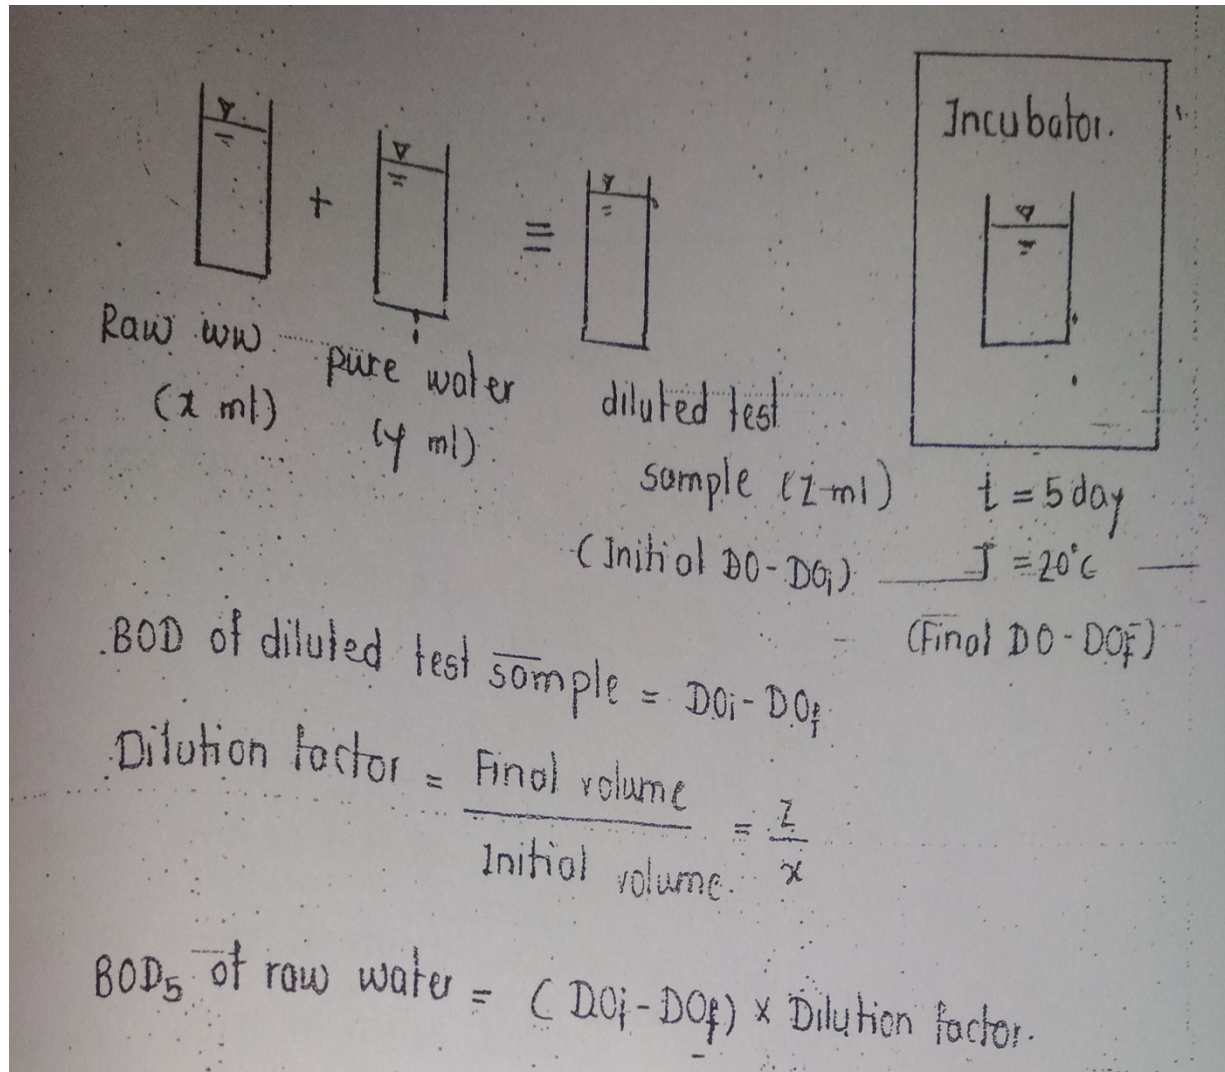 Incubator.
+
≡
Raw ww
(x ml)
pure water
(y ml)
diluted test
sample (Z ml)
(Initial DO - DOi)
t = 5 day
T = 20°C
(Final DO - DOf)
BOD of diluted test sample = DOi - DOf
Dilution factor = Final volume / Initial volume. = Z / x
BOD5 of raw water = (DOi - DOf) x Dilution factor.